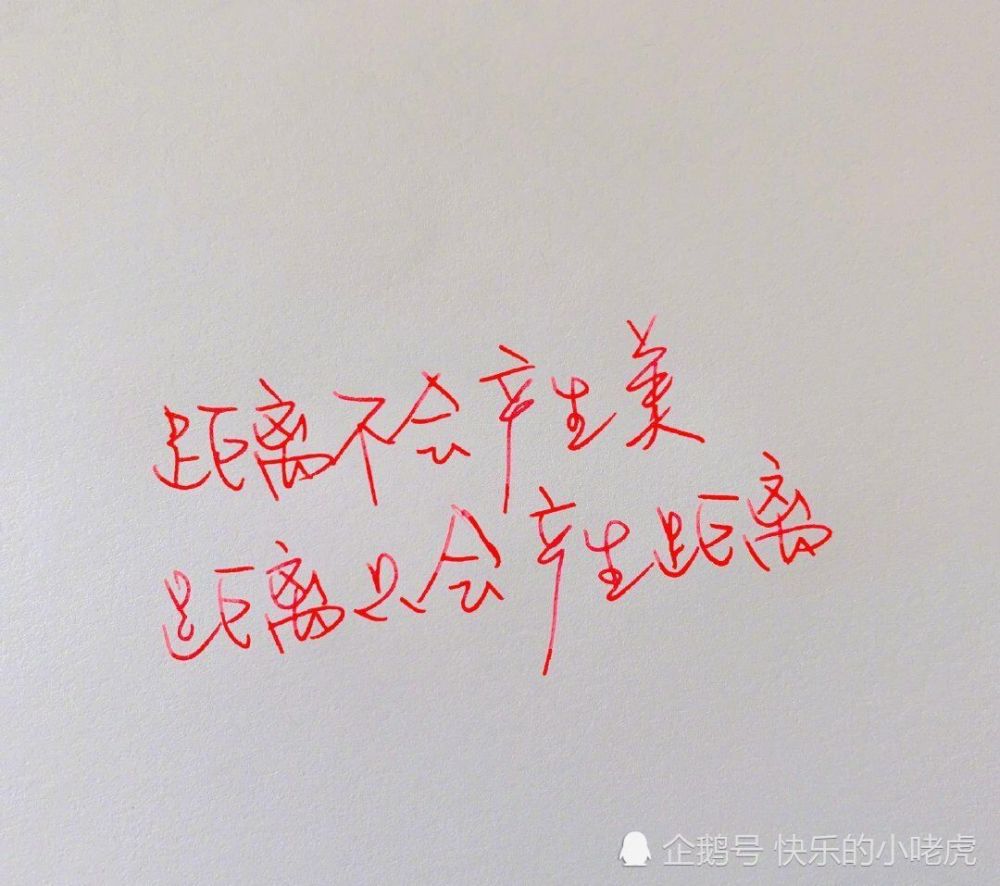 距离不会产生美
距离只会产生距离
企鹅号 快乐的小咾虎